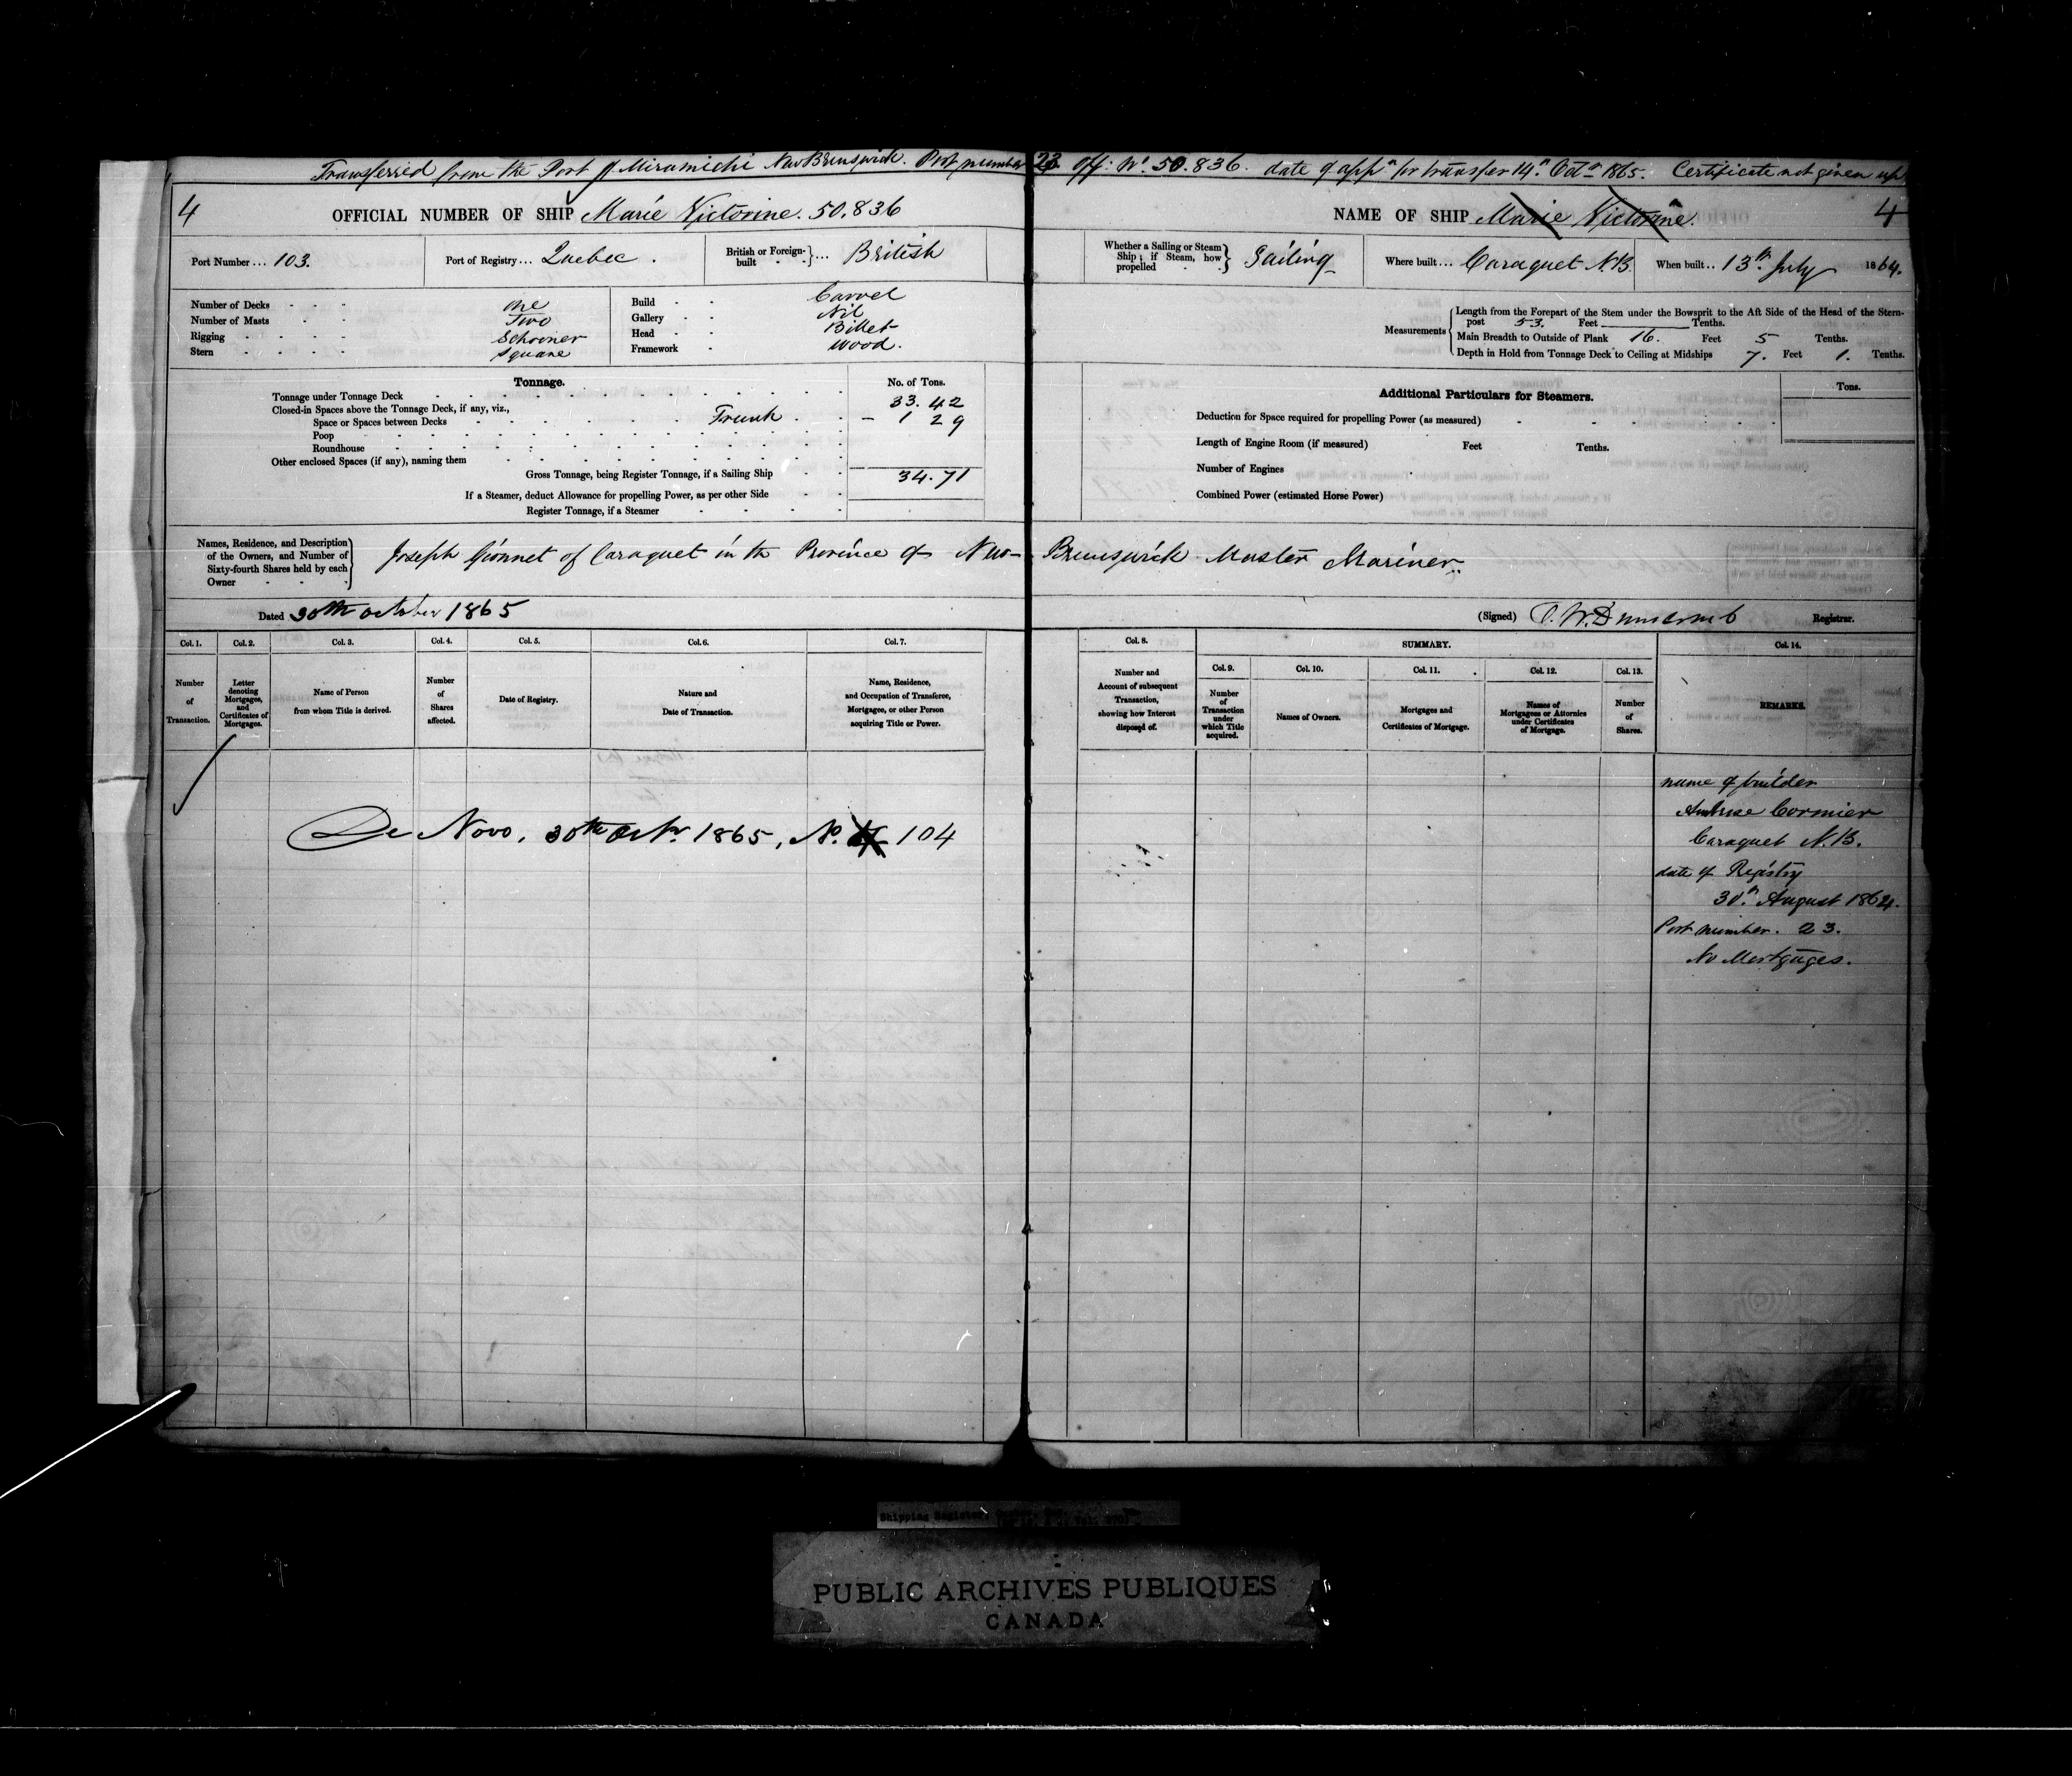 Transferred from the Port of Miramichi New Brunswick. Port number 23 Off: No. 50.836. date of appn for transfer 14th Octr 1865. Certificate not given up
4
OFFICIAL NUMBER OF SHIP Marie Victorine. 50,836
NAME OF SHIP Marie Victorine.
4
Port Number ... 103.
Port of Registry ... Quebec.
British or Foreign-built ... British
Whether a Sailing or Steam Ship; if Steam, how propelled Sailing
Where built ... Caraquet N.B.
When built .. 13th July 1864.
Number of Decks - - - One
Number of Masts - - Two
Rigging - - - - Schooner
Stern - - - - Square
Build - - Carvel
Gallery - - Nil
Head - - Billet
Framework - Wood.
Measurements
Length from the Forepart of the Stem under the Bowsprit to the Aft Side of the Head of the Stern-
post 53. Feet Tenths.
Main Breadth to Outside of Plank 16. Feet 5 Tenths.
Depth in Hold from Tonnage Deck to Ceiling at Midships 7. Feet 1. Tenths.
Tonnage.
No. of Tons.
Tonnage under Tonnage Deck 33.42
Closed-in Spaces above the Tonnage Deck, if any, viz.,
Space or Spaces between Decks Trunk - 1 29
Poop
Roundhouse
Other enclosed Spaces (if any), naming them
Gross Tonnage, being Register Tonnage, if a Sailing Ship 34.71
If a Steamer, deduct Allowance for propelling Power, as per other Side
Register Tonnage, if a Steamer
Additional Particulars for Steamers.
Tons.
Deduction for Space required for propelling Power (as measured)
Length of Engine Room (if measured) Feet Tenths.
Number of Engines
Combined Power (estimated Horse Power)
Names, Residence, and Description
of the Owners, and Number of
Sixty-fourth Shares held by each
Owner
Joseph Gionnet of Caraquet in the Province of New Brunswick Master Mariner.
Dated 30th October 1865
(Signed) J. W. Dunscomb Registrar.
Col. 1.
Number
of
Transaction.
Col. 2.
Letter
denoting
Mortgages,
and
Certificates of
Mortgages.
Col. 3.
Name of Person
from whom Title is derived.
Col. 4.
Number
of
Shares
affected.
Col. 5.
Date of Registry.
Col. 6.
Nature and
Date of Transaction.
Col. 7.
Name, Residence,
and Occupation of Transferee,
Mortgagee, or other Person
acquiring Title or Power.
Col. 8.
Number and
Account of subsequent
Transaction,
showing how Interest
disposed of.
SUMMARY.
Col. 9.
Number
of
Transaction
under
which Title
acquired.
Col. 10.
Names of Owners.
Col. 11.
Mortgages and
Certificates of Mortgage.
Col. 12.
Names of
Mortgagees or Attornies
under Certificates
of Mortgage.
Col. 13.
Number
of
Shares.
Col. 14.
REMARKS.
De Novo, 30th Octr. 1865, No. 104
name of builder
Ambrose Cormier
Caraquet N.B.
date of Registry
30th August 1864.
Port number. 23.
No Mortgages.
Shipping Register,
PUBLIC ARCHIVES PUBLIQUES
CANADA